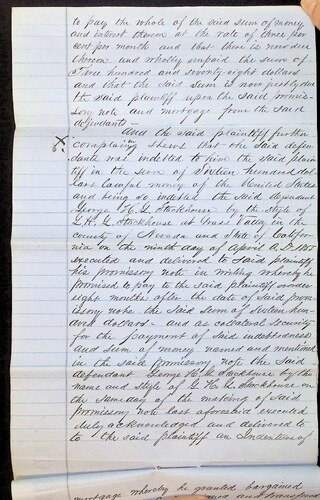 to pay the whole of the said sum of money
and interest thereon at the rate of three per
cent per month and that there is now due
thereon and wholly unpaid the sum of
Five hundred and seventy eight dollars
and that the said sum is now justly due
the said plaintiff upon the said promis-
sory note and mortgage from the said
defendants —
And the said plaintiff further
complaining shews that the said defen-
dants was indebted to him the said plain
tiff in the sum of Sixteen hundred dol-
lars lawful money of the United States
and being so indebted the said
George H. G. Stackhouse by the style of
G. H. G. Stackhouse at Grass Valley in the
County of Nevada and State of Califor
nia on the ninth day of April A. D.
executed and delivered to said plaintiff
his promissory note in writing whereby he
promised to pay to the said plaintiff
eight months after the date of said prom-
issory note the said sum of sixteen hun-
dred dollars — and as colateral security
for the payment of said indebtedness
and sum of money named and mentioned
in the said promissory note the said
defendant George H. G. Stackhouse by the
name and style of G. H. G. Stackhouse on
the same day of the making of said
promissory note last aforesaid executed
duly acknowledged and delivered to
to the said plaintiff an Indenture of
mortgage whereby he granted bargained